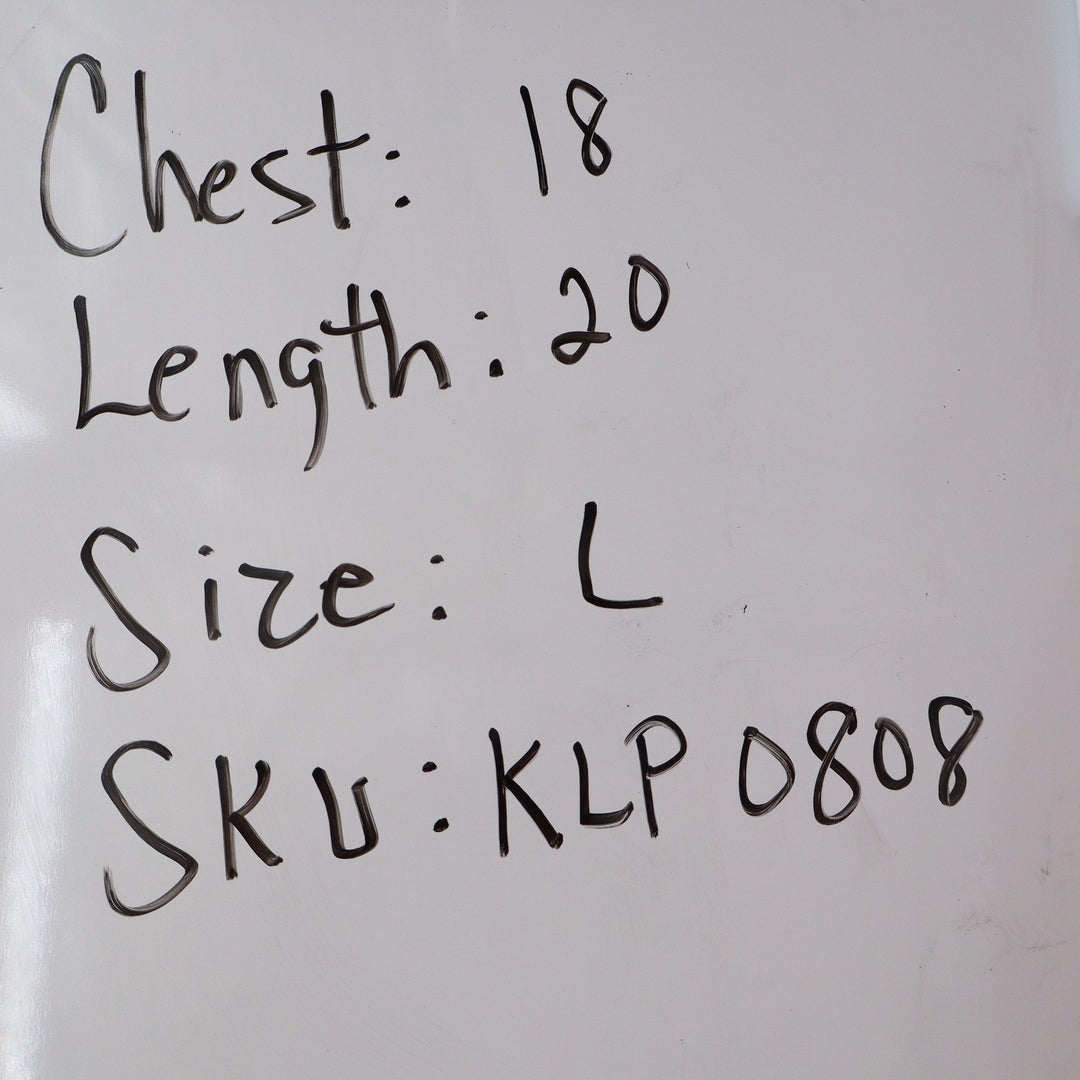 Chest: 18
Length: 20
Size: L
SKU: KLP 0808